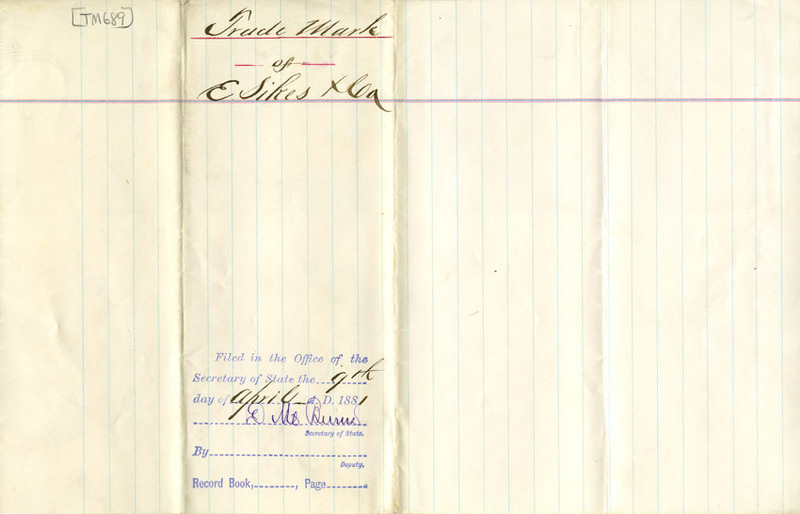 [TM689]
Trade Mark
of
E Sikes & Co
Filed in the Office of the
Secretary of State the 9th
day of April A.D. 1881
E M
Secretary of State.
By
Deputy.
Record Book, , Page